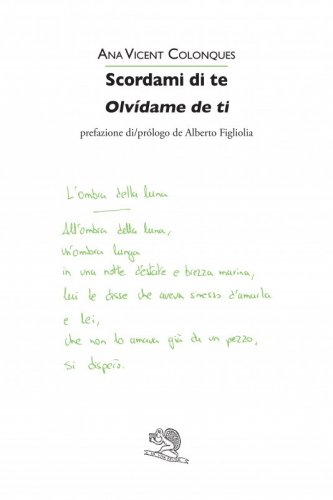 Ana Vicent Colonques
Scordami di te
Olvídame de ti
prefazione di/prólogo de Alberto Figliolia
L'ombra della luna
All'ombra della luna,
un'ombra lunga
in una notte d'estate e brezza marina,
lui le disse che aveva smesso d'amarla
e lei,
che non lo amava già da un pezzo,
si disperò.